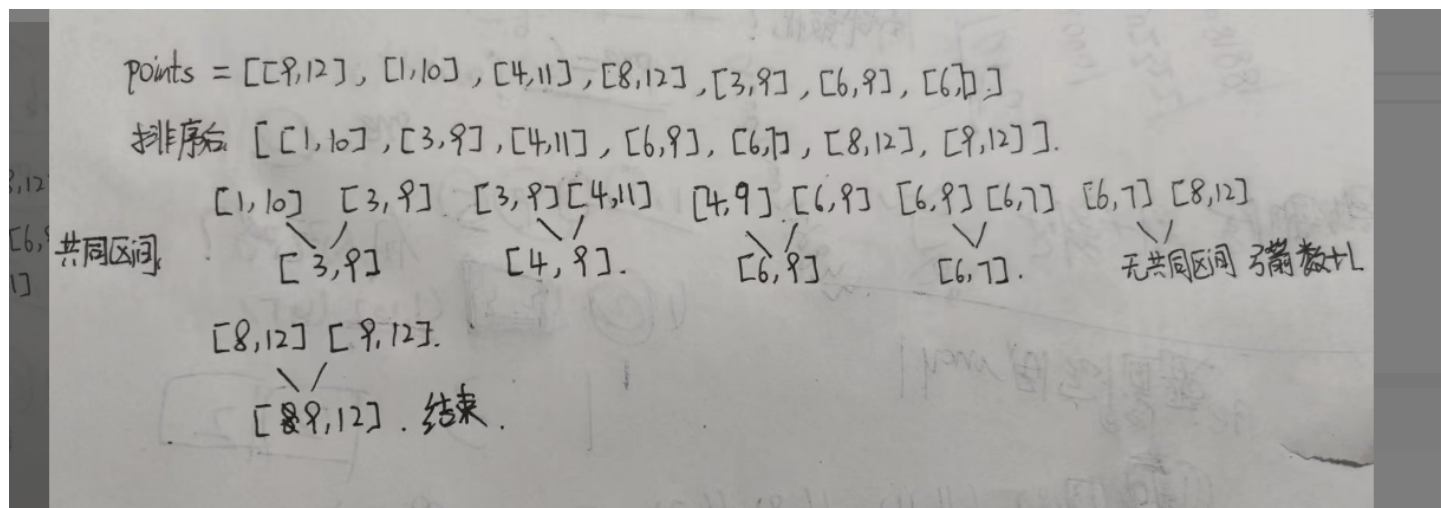 points = [[9,12], [1,10], [4,11], [8,12], [3,9], [6,9], [6,7].]
排序后 [[1,10], [3,9], [4,11], [6,9], [6,7], [8,12], [9,12]].
[1,10] [3,9] [3,9] [4,11] [4,9] [6,9] [6,9] [6,7] [6,7] [8,12]
共同区间 [3,9] [4,9]. [6,9] [6,7]. 无共同区间 弓箭数+1
[8,12] [9,12].
[9,12]. 结束.